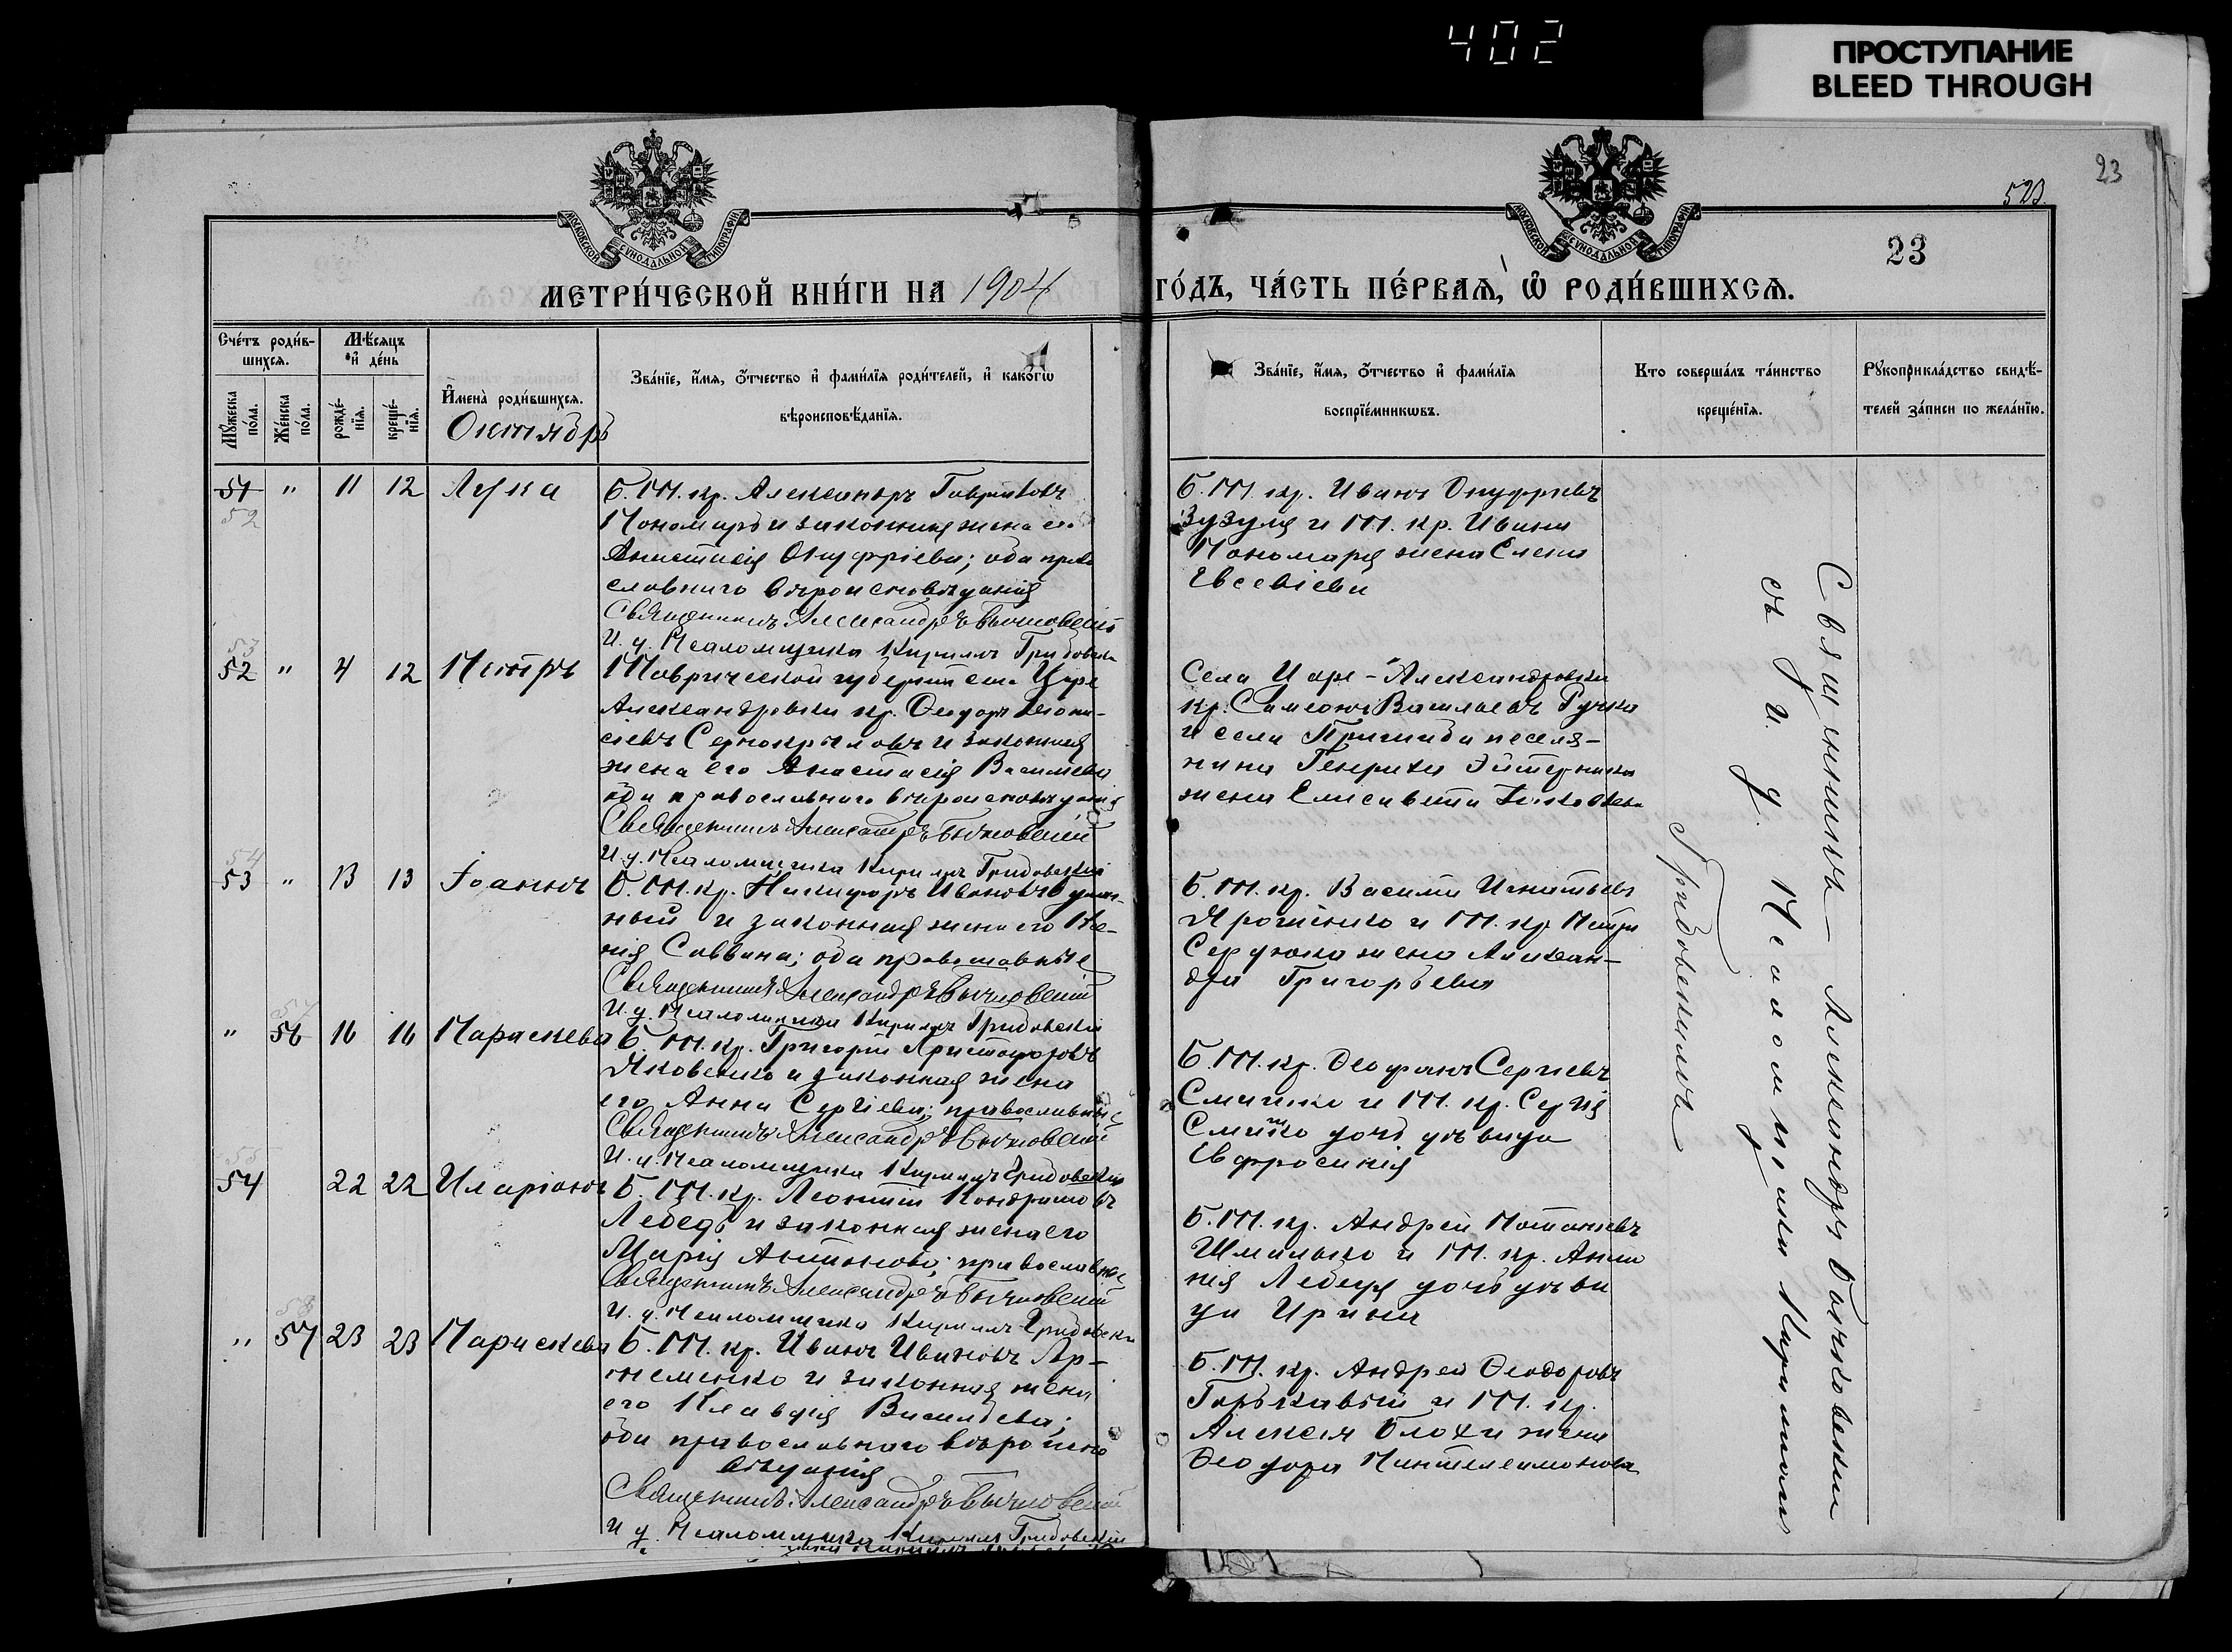 402
ПРОСТУПАНИЕ
BLEED THROUGH
23
523.
23
МОСКОВСКОЙ СѴНОДАЛЬНОЙ ТИПОГРАФІИ
МОСКОВСКОЙ СѴНОДАЛЬНОЙ ТИПОГРАФІИ
МЕТРИ́ЧЕСКОЙ КНИ́ГИ НА 1904 ГО́ДЪ, ЧА́СТЬ ПЕ́РВАѦ, Ѡ РОДИ́ВШИХСѦ.
Сче́тъ роди́в-
шихсѧ.
Мꙋ́жеска по́ла.
Же́нска по́ла.
Мѣ́сѧцъ
и҆ де́нь
рожде́-
нїѧ.
креще́-
нїѧ.
И҆мена̀ роди́вшихсѧ.
Октябрь
Зва́нїе, и҆́мѧ, о҆́тчество и҆ фами́лїѧ роди́телей, и҆ како́гѡ
вѣроисповѣ́данїѧ.
Зва́нїе, и҆́мѧ, о҆́тчество и҆ фами́лїѧ
воспрїе́мникѡвъ.
Кто соверша́лъ та́инство
креще́нїѧ.
Рꙋкоприкла́дство свидѣ́-
телей за́писи по жела́нїю.
51 " 11 12 Лука
52
Б. М. кр. Александръ Гавриловъ
Пономарь и законная жена его
Анастасія Онуфріева; оба право
славнаго вѣроисповѣданія
Священникъ Александръ Бычковскій
И. д. Псаломщика Кириллъ Грибовскій
Б. М. кр. Иванъ Онуфріевъ
Зузуля и М. кр. Ивана
Пономаря жена Елена
Евсевіева
53
52 " 4 12 Петръ
Таврической губерніи села Царе
Александровки кр. Феодоръ
сіевъ и законная
жена его Анастасія Васильева
оба православнаго вѣроисповѣданія
Священникъ Александръ Бычковскій
И. д. Псаломщика Кириллъ Грибовскій
Села Царе-Александровки
кр. Симеонъ Васильевъ Ручка
и села Пришиба поселя-
нина Генриха
жена Елисавета
54
53 " 13 13 Іоаннъ
Б. М. кр. Никифоръ Ивановъ
ный и законная жена его Ксе-
нія Саввина; оба православные
Священникъ Александръ Бычковскій
И. д. Псаломщика Кириллъ Грибовскій
Б. М. кр. Василій Игнатьевъ
Ярошенко и М. кр. Петра
Сердюка жена Алексан-
дра Григорьева
57
" 56 16 16 Параскева
Б. М. кр. Григорій Христофоровъ
Яковенко и законная жена
его Анна Сергіева; православные
Священникъ Александръ Бычковскій
И. д. Псаломщика Кириллъ Грибовскій
Б. М. кр. Феофанъ Сергіевъ
и М. кр. Сергія
дочь дѣвица
Евфросинія
55
54 22 22 Иларіонъ
Б. М. кр. Леонтій Кондратовъ
Лебедь и законная жена его
Марія Антонова; православные
Священникъ Александръ Бычковскій
И. д. Псаломщика Кириллъ Грибовскій
Б. М. кр. Андрей Потапіевъ
Шмалько и М. кр. Анто
нія Лебедя дочь дѣви
ца Ирина
58
" 57 23 23 Параскева
Б. М. кр. Иванъ Ивановъ Ар-
теменко и законная жена
его Клавдія Васильева;
оба православнаго вѣроиспо
вѣданія
Священникъ Александръ Бычковскій
И. д. Псаломщика Кириллъ Грибовскій
Б. М. кр. Андрей Феодоровъ
Горькавый и М. кр.
Алексія Блохи жена
Феодора Пантелеимонова
Священникъ Александръ Бычковскій
съ и. д. Псаломщика Кирилломъ
Грибовскимъ